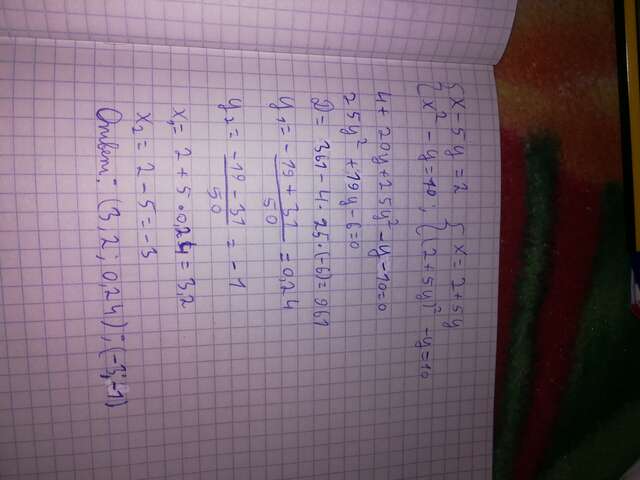 { x - 5y = 2 { x = 2 + 5y
{ x² - y = 10 ; { (2 + 5y)² - y = 10
4 + 20y + 25y² - y - 10 = 0
25y² + 19y - 6 = 0
D = 361 - 4 · 25 · (-6) = 961
y₁ = (-19 + 31)/50 = 0,24
y₂ = (-19 - 31)/50 = -1
x₁ = 2 + 5 · 0,24 = 3,2
x₂ = 2 - 5 = -3
Ответ: (3,2; 0,24); (-3;-1)